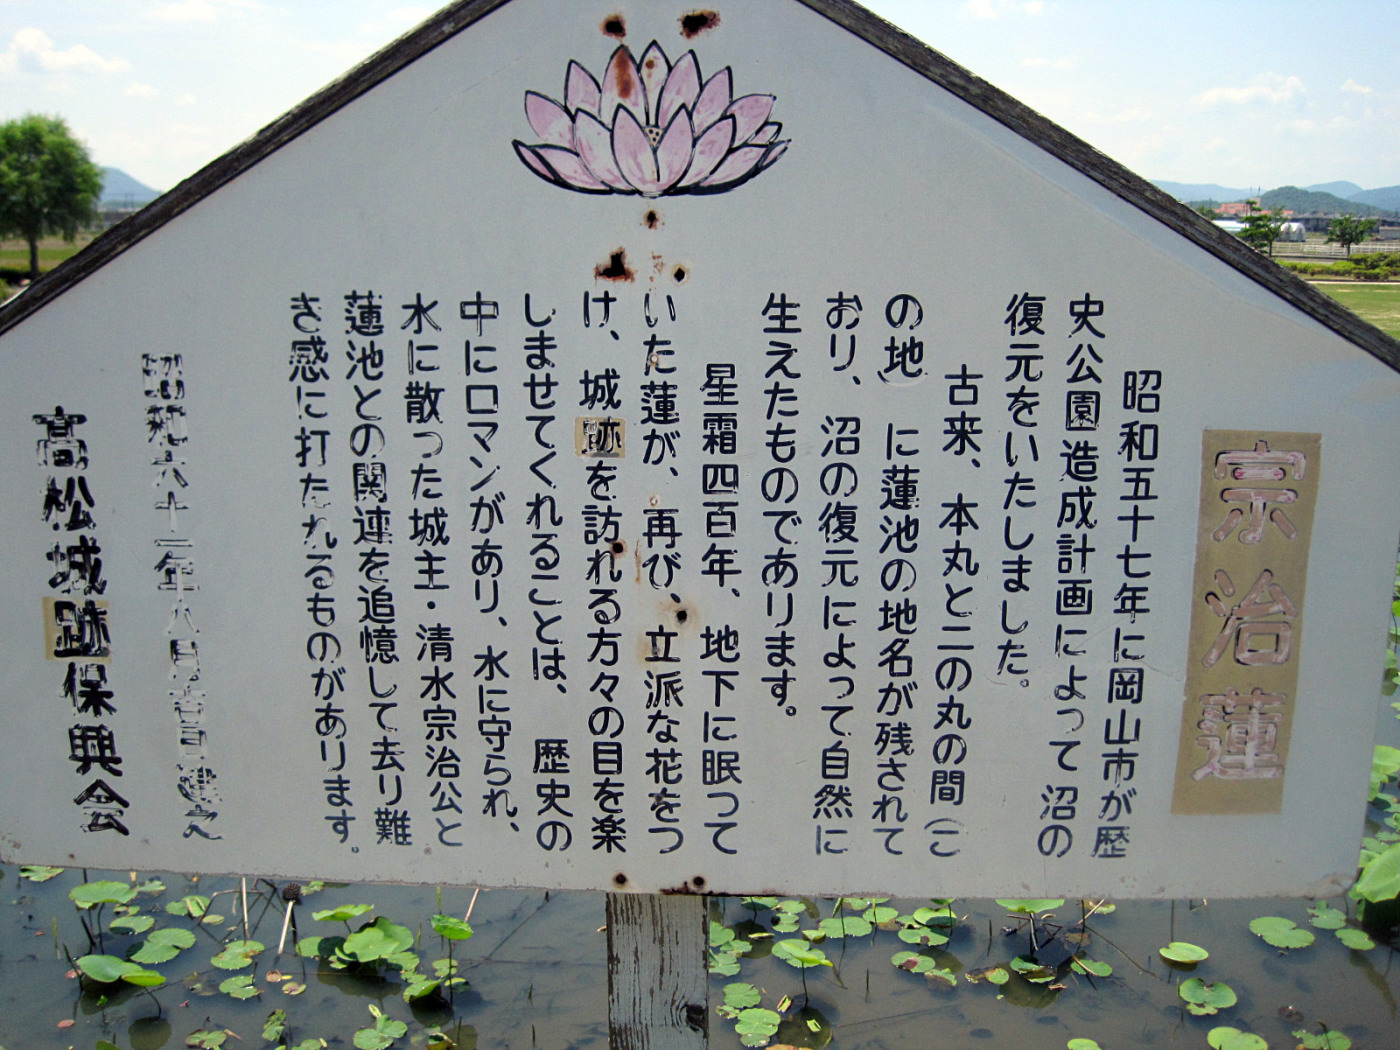 宗治蓮
昭和五十七年に岡山市が歴
史公園造成計画によって沼の
復元をいたしました。
古来、本丸と二の丸の間(こ
の地)に蓮池の地名が残されて
おり、沼の復元によって自然に
生えたものであります。
星霜四百年、地下に眠って
いた蓮が、再び、立派な花をつ
け、城跡を訪れる方々の目を楽
しませてくれることは、歴史の
中にロマンがあり、水に守られ、
水に散った城主・清水宗治公と
蓮池との関連を追憶して去り難
き感に打たれるものがあります。
昭和六十二年八月吉日建之
高松城跡保興会